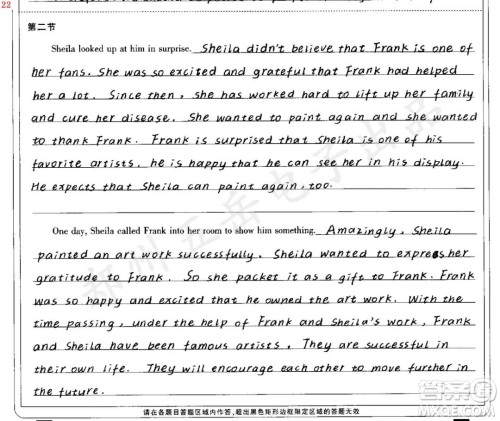 22
第二节
Sheila looked up at him in surprise. Sheila didn't believe that Frank is one of
her fans. She was so excited and grateful that Frank had helped
her a lot. Since then, she has worked hard to lift up her family
and cure her disease. She wanted to paint again and she wanted
to thank Frank. Frank is surprised that Sheila is one of his
favorite artists, he is happy that he can see her in his display.
He expects that Sheila can paint again, too.
One day, Sheila called Frank into her room to show him something. Amazingly, Sheila
painted an art work successfully. Sheila wanted to express her
gratitude to Frank. So she packet it as a gift to Frank. Frank
was so happy and excited that he owned the art work. With the
time passing, under the help of Frank and Sheila's work, Frank
and Sheila have become famous artists. They are successful in
their own life. They will encourage each other to move further in
the future.
请在各题目答题区域内作答,超出黑色矩形边框限定区域的答题无效